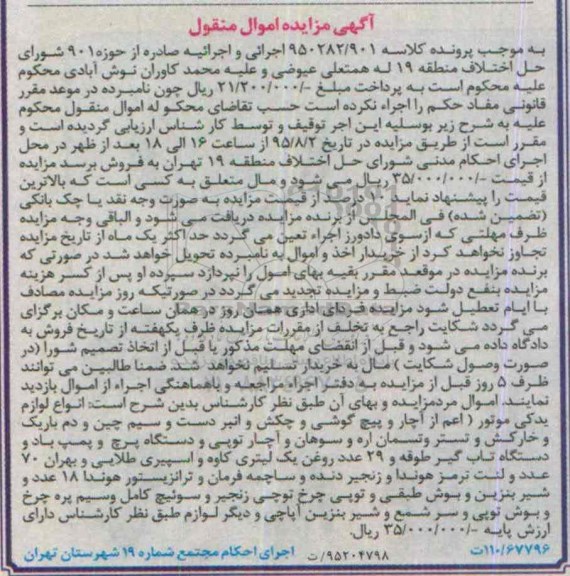 آگهی مزایده اموال منقول
به موجب پرونده کلاسه ۹۵۰۲۸۲/۹۰۱ اجرائی و اجرائیه صادره از حوزه ۹۰۱ شورای
حل اختلاف منطقه ۱۹ له همتعلی عیوضی و علیه محمد کاوران نوش آبادی محکوم
علیه محکوم است به پرداخت مبلغ -/۲۱/۲۰۰/۰۰۰ ریال چون نامبرده در موعد مقرر
قانونی مفاد حکم را اجراء نکرده است حسب تقاضای محکو له اموال منقول محکوم
علیه به شرح زیر بوسلیه این اجر توقیف و توسط کار شناس ارزیابی گردیده است و
مقرر است از طریق مزایده در تاریخ ۹۵/۸/۲ از ساعت ۱۶ الی ۱۸ بعد از ظهر در محل
اجرای احکام مدنی شورای حل اختلاف منطقه ۱۹ تهران به فروش برسد مزایده
از قیمت -/۳۵/۰۰۰/۰۰۰ ریال می شود و مال متعلق به کسی است که بالاترین
قیمت را پیشنهاد نماید ۱۰ درصد از قیمت مزایده به صورت وجه نقد یا چک بانکی
(تضمین شده) فی المجلس از برنده مزایده دریافت می شود و الباقی وجه مزایده
ظرف مهلتی که ازسوی دادورز اجراء تعین می گردد حد اکثر یک ماه از تاریخ مزایده
تجاوز نخواهد کرد از خریدار اخذ و اموال به نامبرده تحویل خواهد شد در صورتی که
برنده مزایده در موقعد مقرر بقیه بهای امول را نپردازد سپرده او پس از کسر هزینه
مزایده بنفع دولت ضبط و مزایده تجدید می گردد در صورتیکه روز مزایده مصادف
با ایام تعطیل شود مزایده فردای اداری همان روز در همان ساعت و مکان برگزای
می گردد شکایت راجع به تخلف از مقررات مزایده ظرف یکهفته از تاریخ فروش به
دادگاه داده می شود و قبل از انقضای مهلت مذکور یا قبل از اتخاذ تصمیم شورا (در
صورت وصول شکایت ) مال به خریدار تسلیم نخواهد شد. ضمنا طالبین می توانند
ظرف ۵ روز قبل از مزایده به دفتر اجراء مراجعه و باهماهنگی اجراء از اموال بازدید
نمایند. اموال مردمزایده و بهای آن طبق نظر کارشناس بدین شرح است: انواع لوازم
یدکی موتور ( اعم از آچار و پیچ گوشتی و چکش و انبر دست و سیم چین و دم باریک
و خارکش و تستر وتسمان اره و سوهان و آچار توپی و دستگاه پرچ و پمپ باد و
دستگاه تاب گیر طوقه و ۲۹ عدد روغن یک لیتری کاوه و اسپیری طلایی و بهران ۷۰
عدد و لنت ترمز هوندا و زنجیر دنده و ساچمه فرمان و ترانزیستور هوندا ۱۸ عدد و
شیر بنزین و بوش طبقی و توپی چرخ توجی زنجیر و سوئیچ کامل وسیم پره چرخ
و بوش توپی و سر شمع و شیر بنزین آپاچی و دیگر لوازم طبق نظر کارشناس دارای
ارزش پایه -/۳۵/۰۰۰/۰۰۰ ریال.
۱۱۰/۶۷۷۹۶ت ۹۵۲۰۴۷۹۸/ت اجرای احکام مجتمع شماره ۱۹ شهرستان تهران